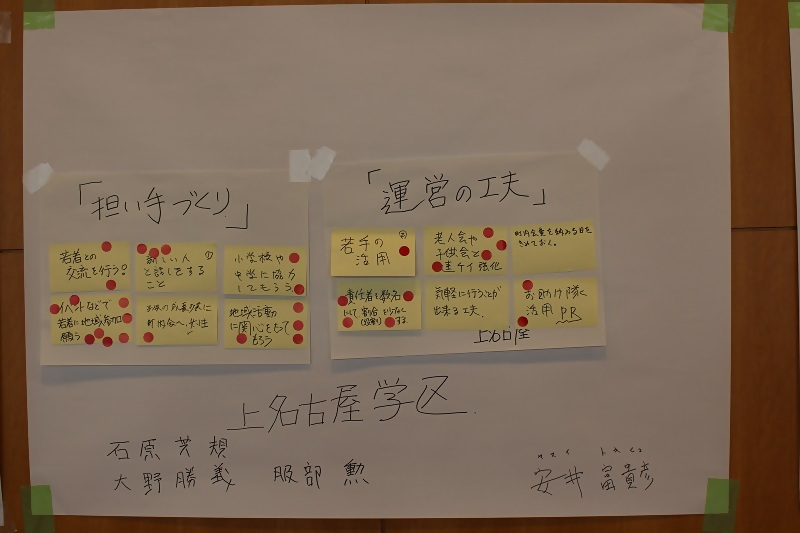 「担い手づくり」
若者との
交流を行う?
新しい人 ①
と話しをする
こと
小学校や
中学に協力
してもらう
イベントなどで
若者に地域参加
願う
町内会へ
地域活動
に関心をもって
もらう
「運営の工夫」
若手の ②
活用
老人会や
子供会と
連ケイ強化
町内会費を納める日を
きめておく。
責任者を数名
にして
する
気軽に行うことが
出来る工夫
お助け隊
活用 PR
上名古屋
上名古屋学区
石原芳規
大野勝義 服部勲
安井富貴彦